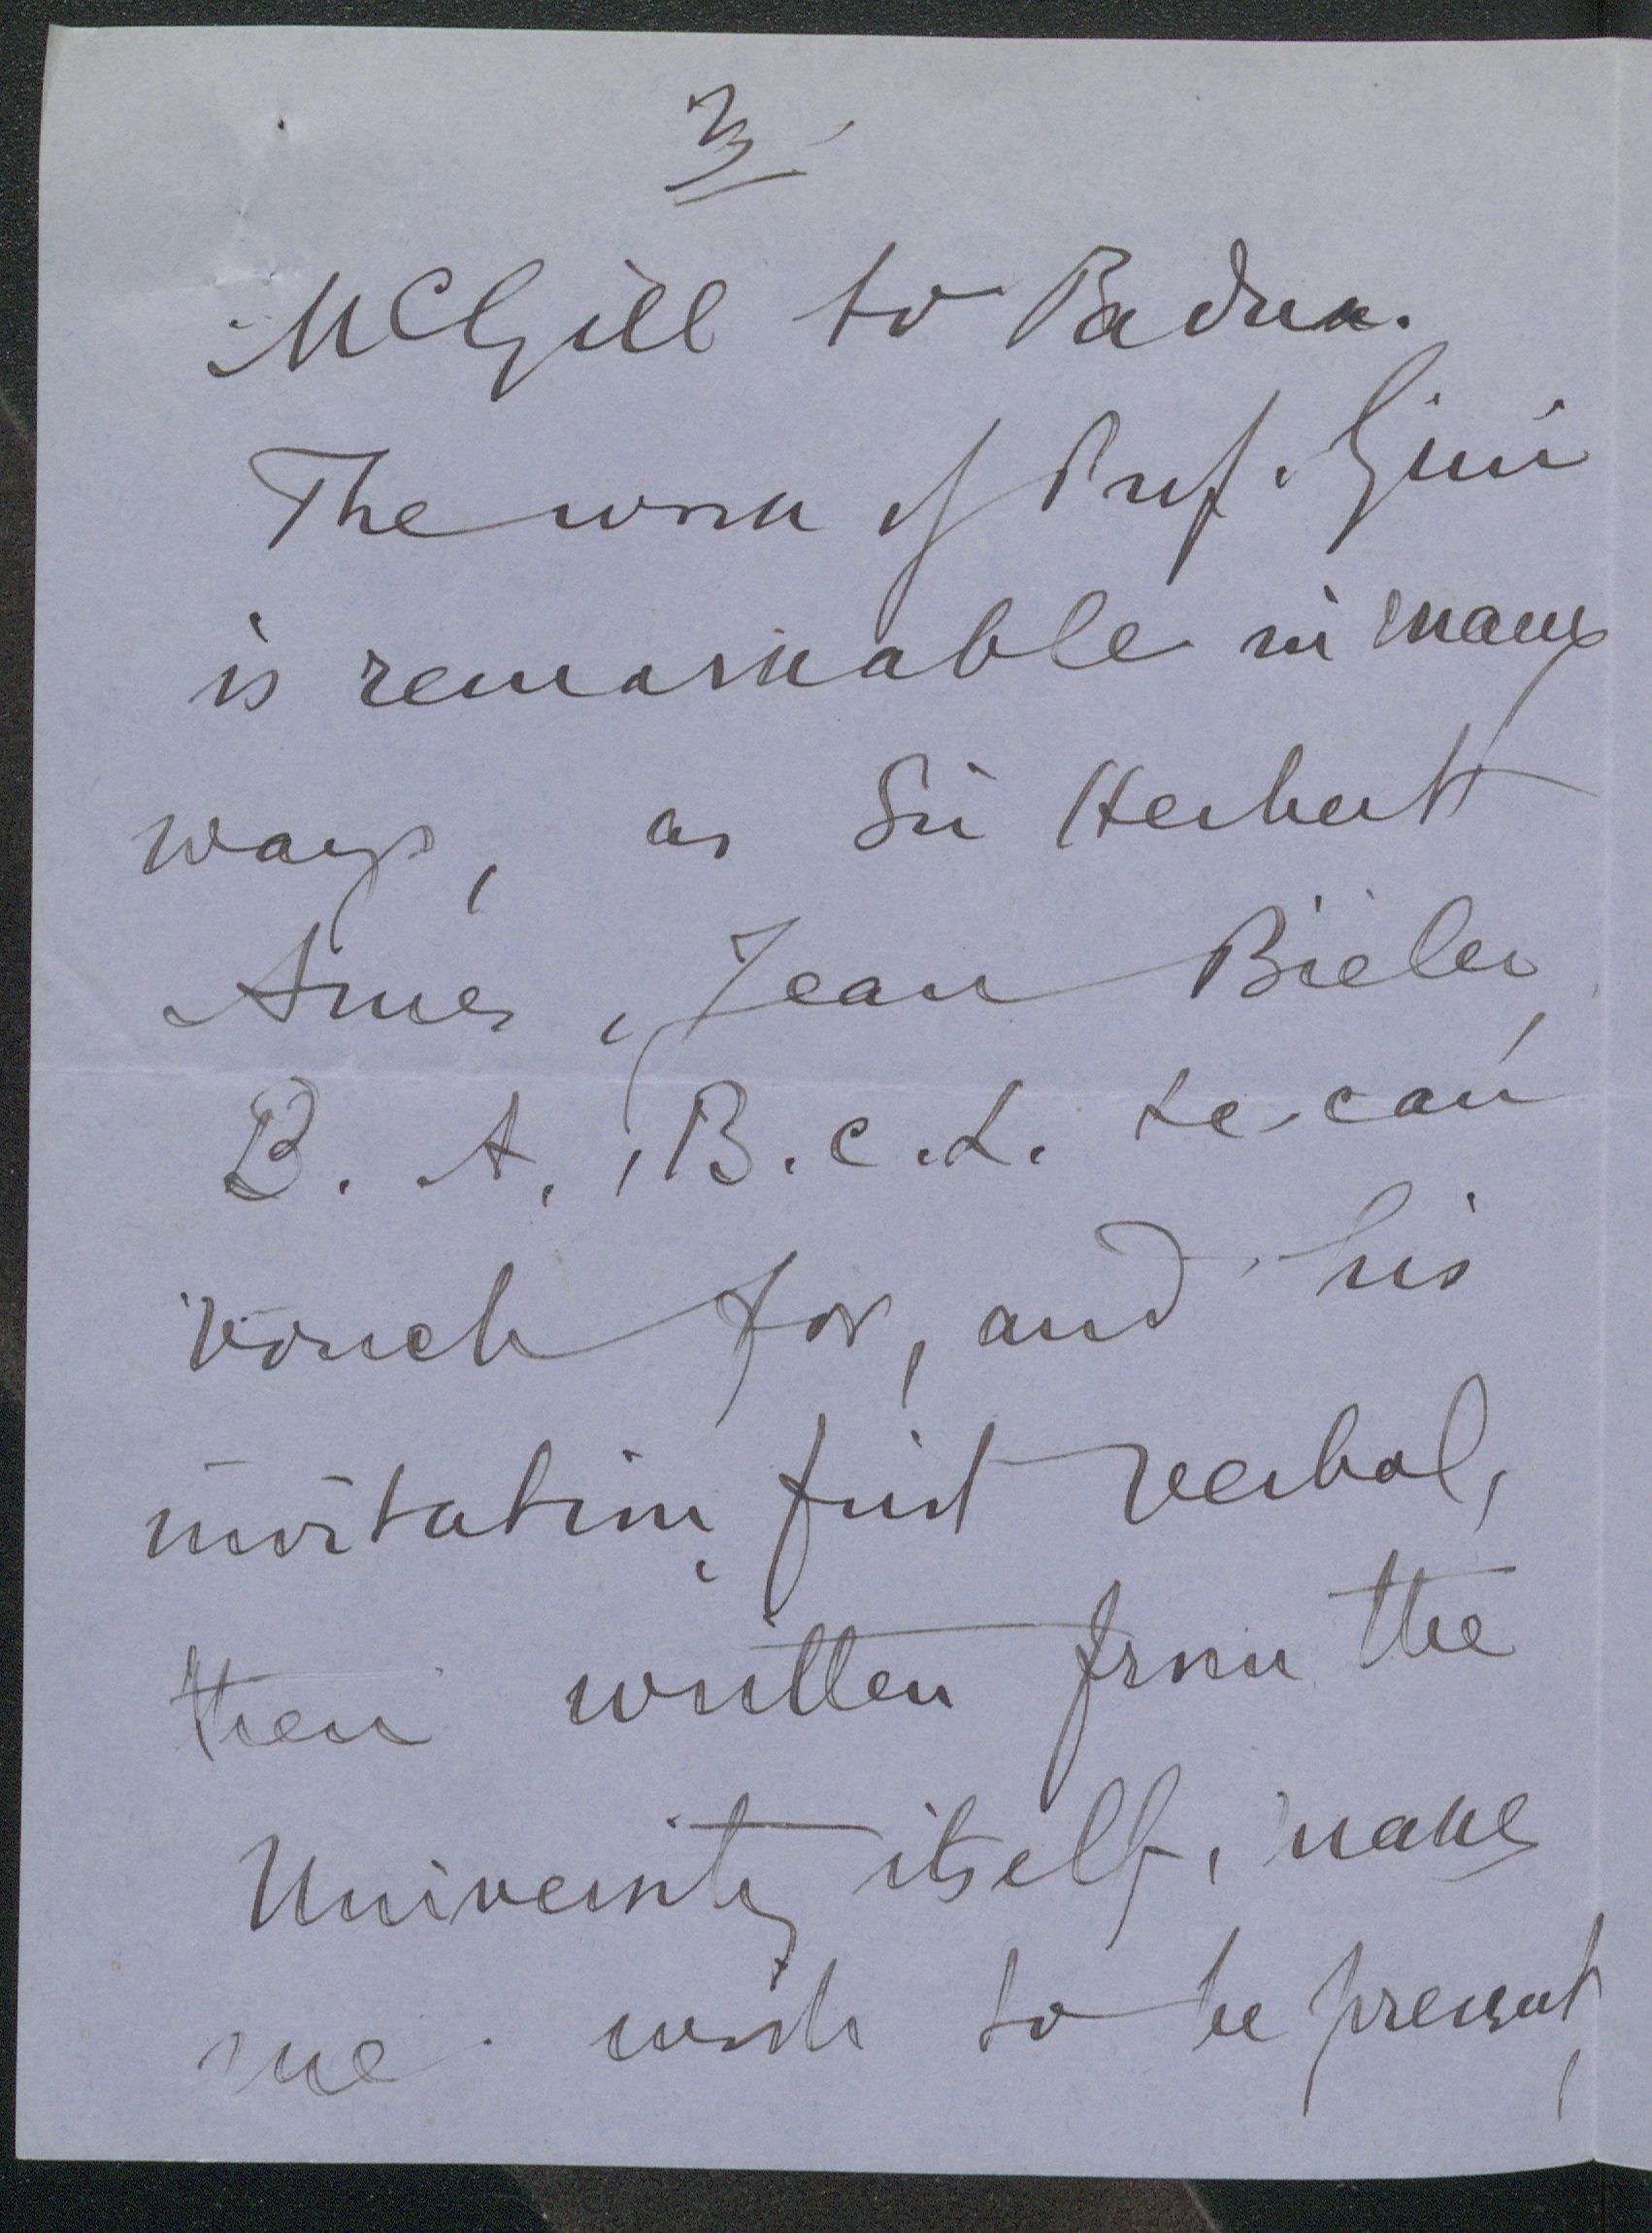 3
McGill to Padua.
The work of Prof. Gini
is remarkable in many
ways, as Sir Herbert
Ames, Jean Bieler,
B. A., B.C.L. &c. can
vouch for, and his
invitation, first verbal,
then written from the
University itself, makes
me wish to be present,